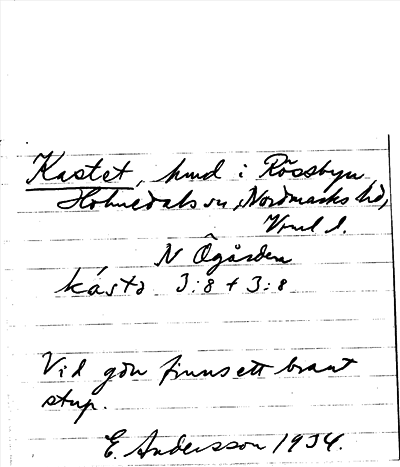 Kastet, hmd i Rössbyn,
Holmedals sn, Nordmarks hd,
Vrml l.
N Ögården
kástə 3:8 + 3:8
Vid gdn finns ett brant
stup.
E. Andersson 1934.